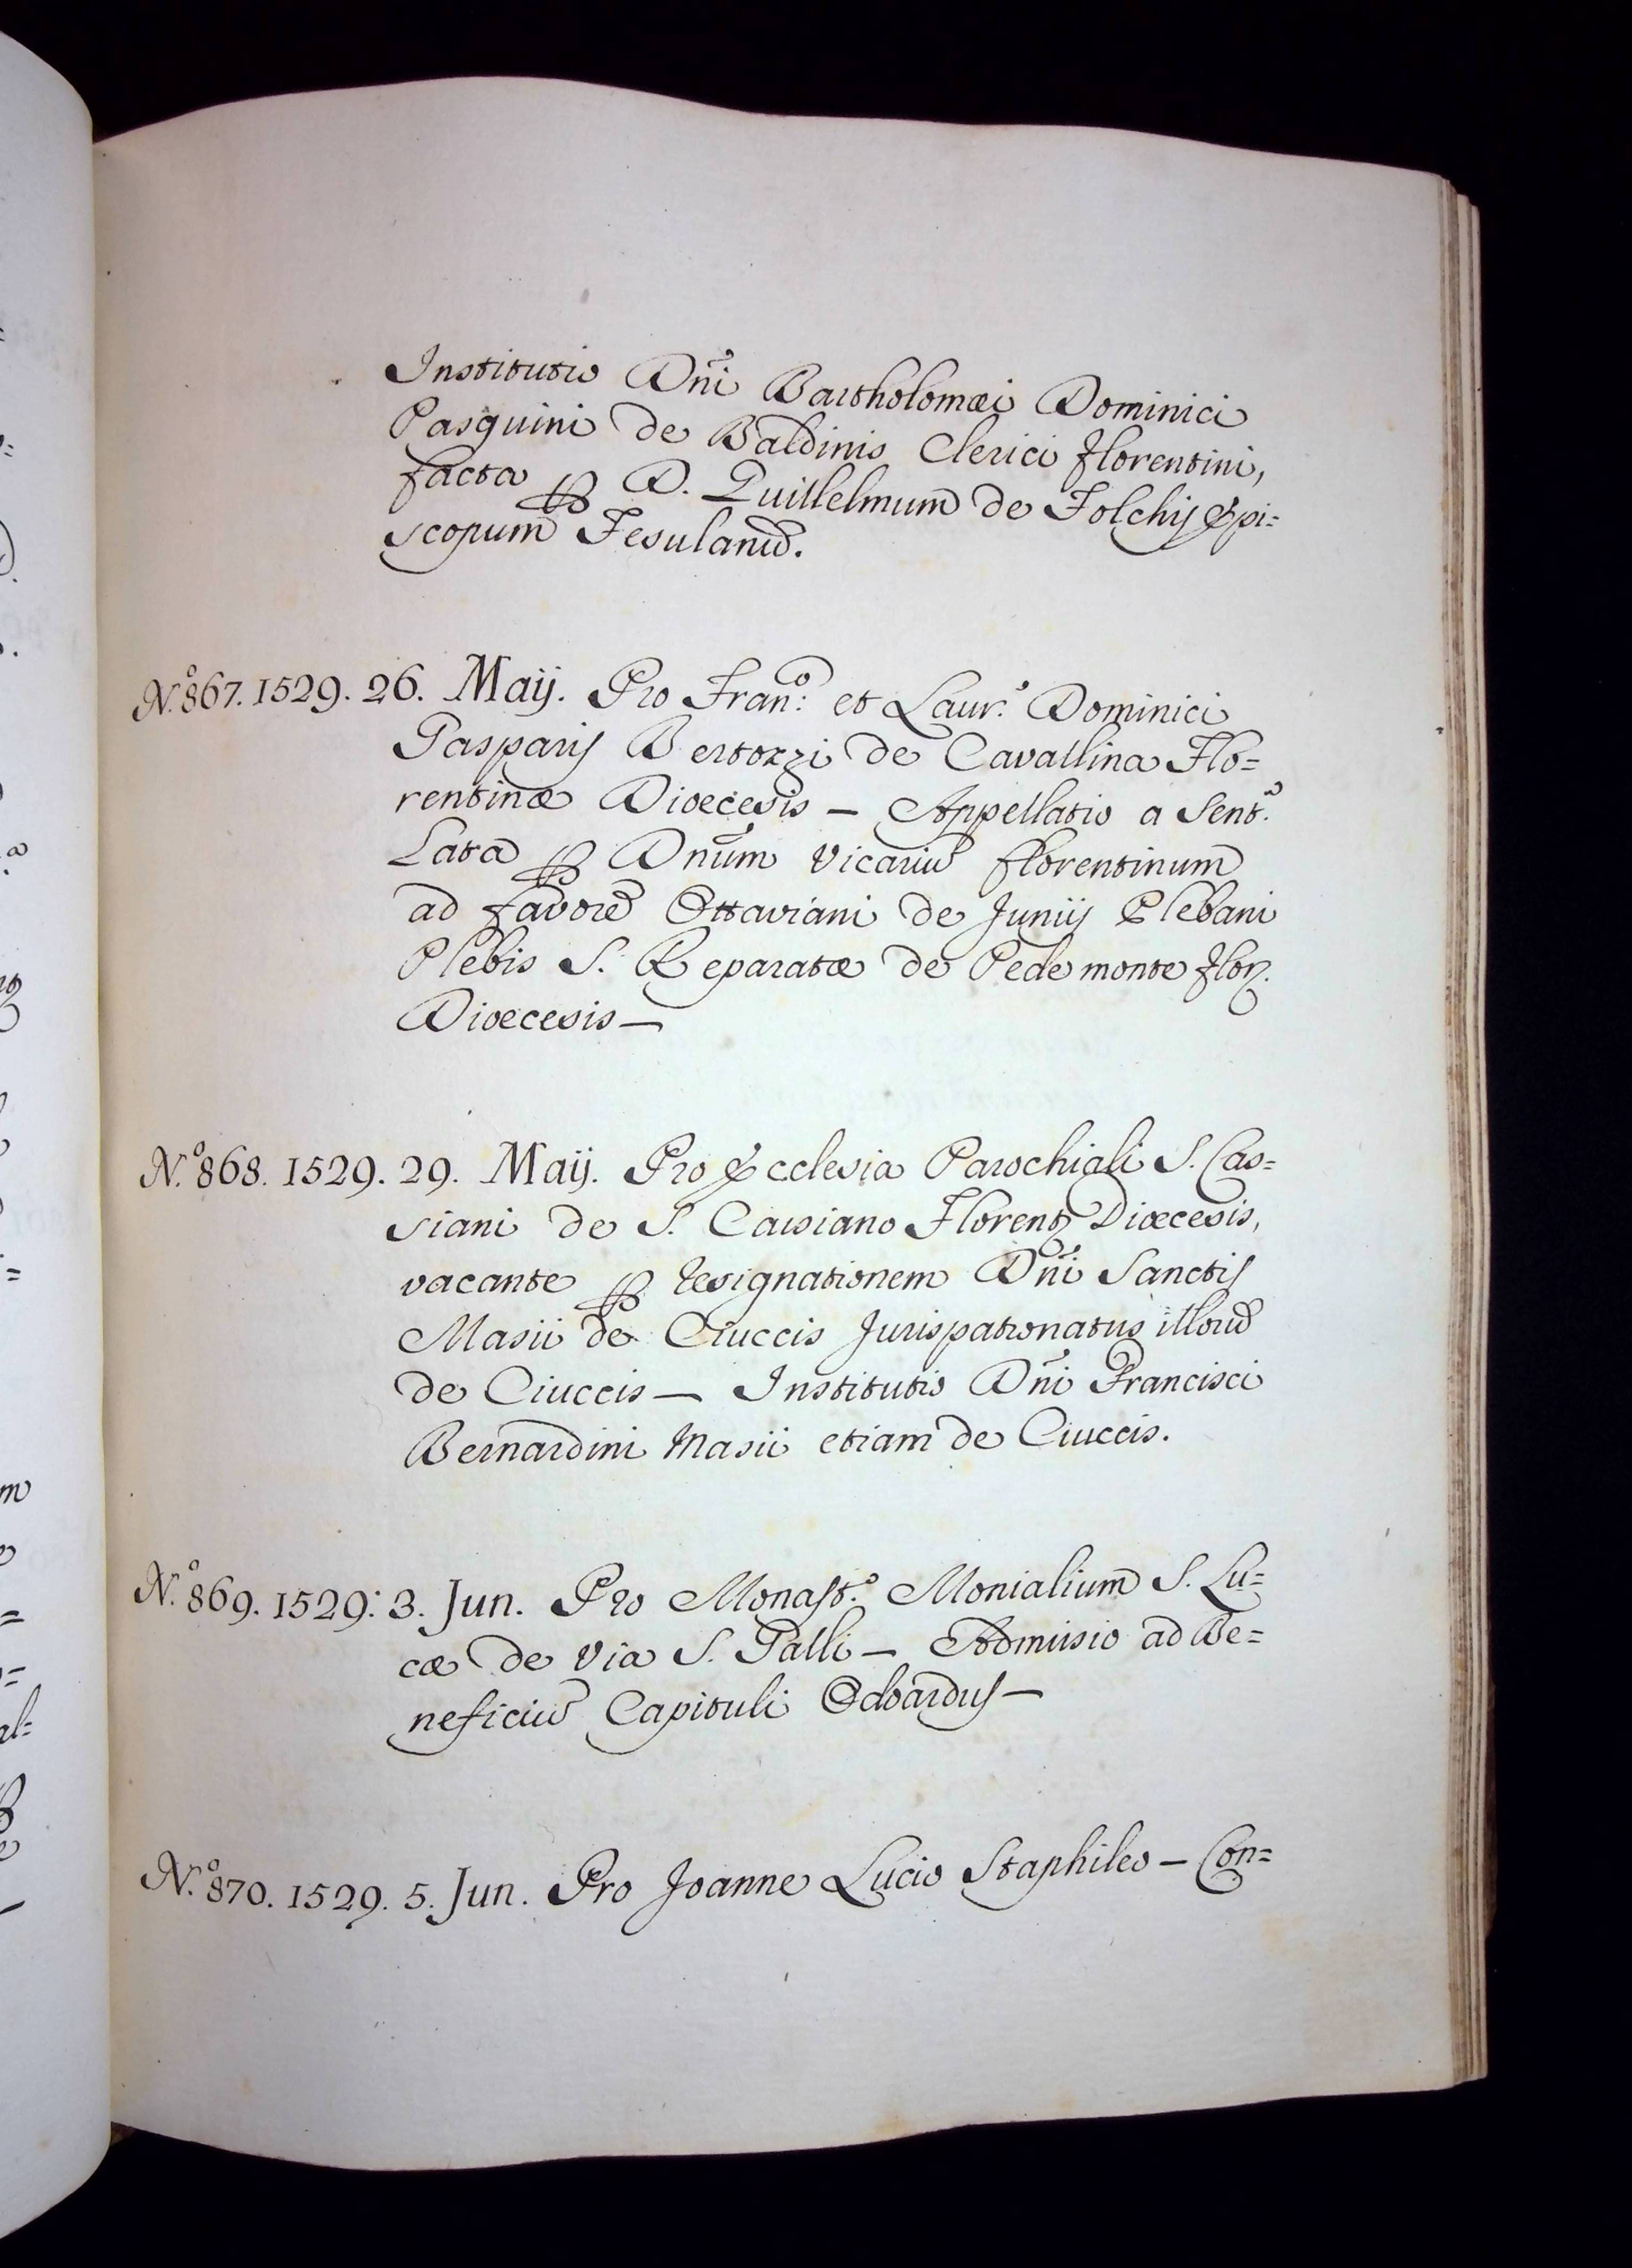 Institutio Dn̄i Bartholomæi Dominici
Pasquini de Baldinis Clerici Florentini,
facta ꝑ D. Guillelmum de Folchij Epi=
scopum Fesulanū.
N.º 867. 1529. 26. Maij. Pro Fran.º et Laur.º Dominici
Gasparis Bertozzi de Cavallina Flo=
rentinæ Dioecesis — Appellatio a Sent.ª
Lata ꝑ Dnūm Vicariū florentinum
ad favorē Ottaviani de Junijs Plebani
Plebis S. Reparatæ de Pede monte Flor.
Dioecesis —
N.º 868. 1529. 29. Maij. Pro Ecclesia Parochiali S. Cas=
siani de S. Cassiano Florent. Dioecesis,
vacante ꝑ resignationem Dn̄i Sanctis
Masii de Ciuccis Jurispatronatus illorū
de Ciuccis — Institutio Dn̄i Francisci
Bernardini Masii etiam de Ciuccis.
N.º 869. 1529. 3. Jun. Pro Monast.º Monialium S. Lu=
cæ de Via S. Galli — Admisio ad Be=
neficiū Capituli Odoardus —
N.º 870. 1529. 5. Jun. Pro Joanne Lucio Staphileo — Con=